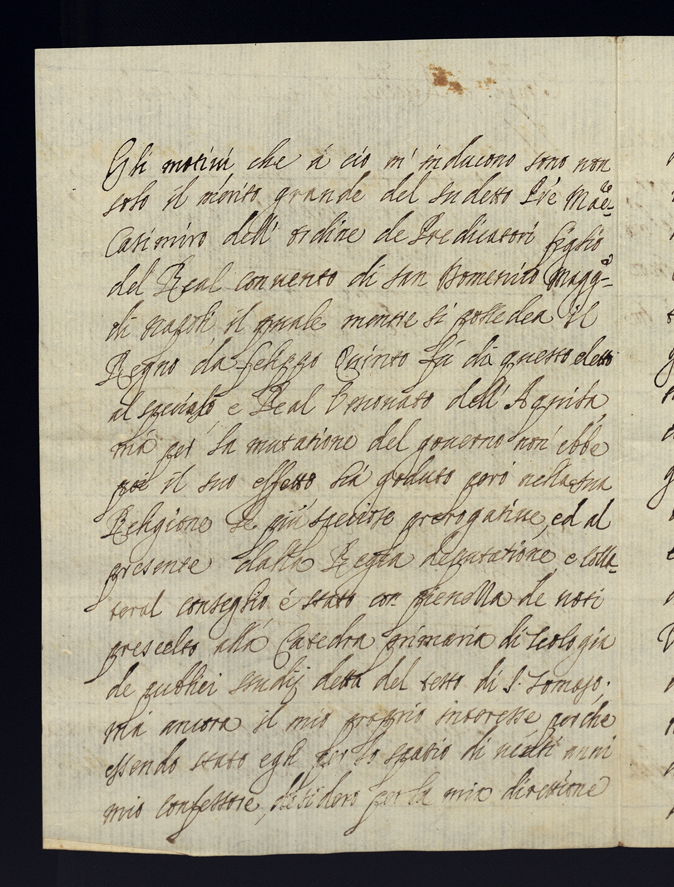 Gli motivi che à cio m' inducono sono non
solo il merito grande del sudetto Prê Maẽ
Casimiro dell' ordine de Predicatori figlio
del Real convento di san Domenico Magg.
di Napoli il quale mentre si possedea il
Regno da Felippo Quinto fù da questo eletto
al speciale e Real Vescovato dell' Aquila
mà per la mutatione del governo non ebbe
poi il suo effetto hà goduto però nella sua
Religione le più speciose prerogative, ed al
presente dalla Regia deputatione e Colla-
teral conseglio é stato con pienezza de voti
prescelto alla Catedra primaria di Teologia
de publici studij detta del testo di S. Tomaso.
mà ancora il mio proprio interesse perche
essendo stato egli per lo spatio di molti anni
mio confessore, desidero per la mia direttione